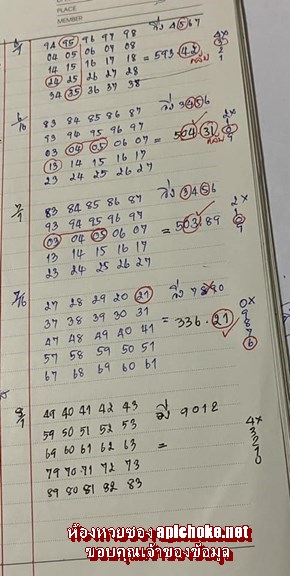 PLACE
MEMBER
6/1 94 95 96 97 98 วิ่ง 4567
04 05 06 07 08 4x
14 15 16 17 18 = 593.42
24 25 26 27 28 กลับ
34 35 36 37 38
6/16 83 84 85 86 87 วิ่ง 3456
93 94 95 96 97 2x
03 04 05 06 07 = 504.31
13 14 15 16 17 กลับ
23 24 25 26 27
7/1 83 84 85 86 87 วิ่ง 3456
93 94 95 96 97 2x
03 04 05 06 07 = 503.89
13 14 15 16 17
23 24 25 26 27
7/16 27 28 29 20 21 วิ่ง 7890
37 38 39 30 31 0x
47 48 49 40 41 = 336.21 9 8 7 6
57 58 59 50 51
67 68 69 60 61
8/1 49 40 41 42 43 มี 9012
59 50 51 52 53
69 60 61 62 63 = 4x
79 70 71 72 73 3 2 1 0
89 80 81 82 83
ห้องหวยซอง aplchoke.net
ขอบคุณเจ้าของข้อมูล